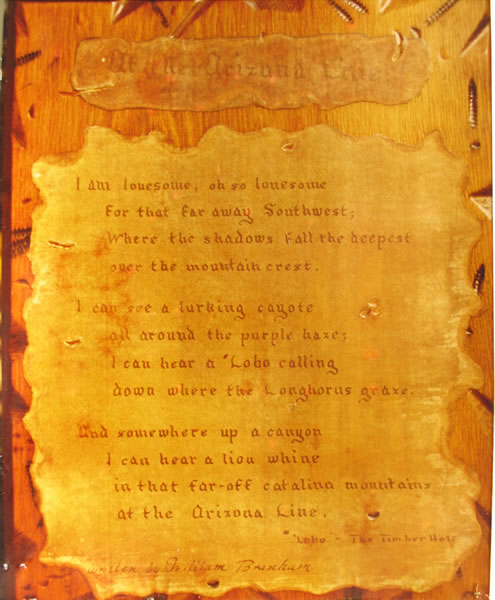 At the Arizona Line
I am lonesome, oh so lonesome
For that far away Southwest;
Where the shadows fall the deepest
over the mountain crest.
I can see a lurking cayote
all around the purple haze;
I can hear a "Lobo calling
down where the Longhorns graze.
And somewhere up a canyon
I can hear a lion whine
in that far-off catalina mountains
at the Arizona Line.
"Lobo" - The Timber Wolf
written by William Brenham